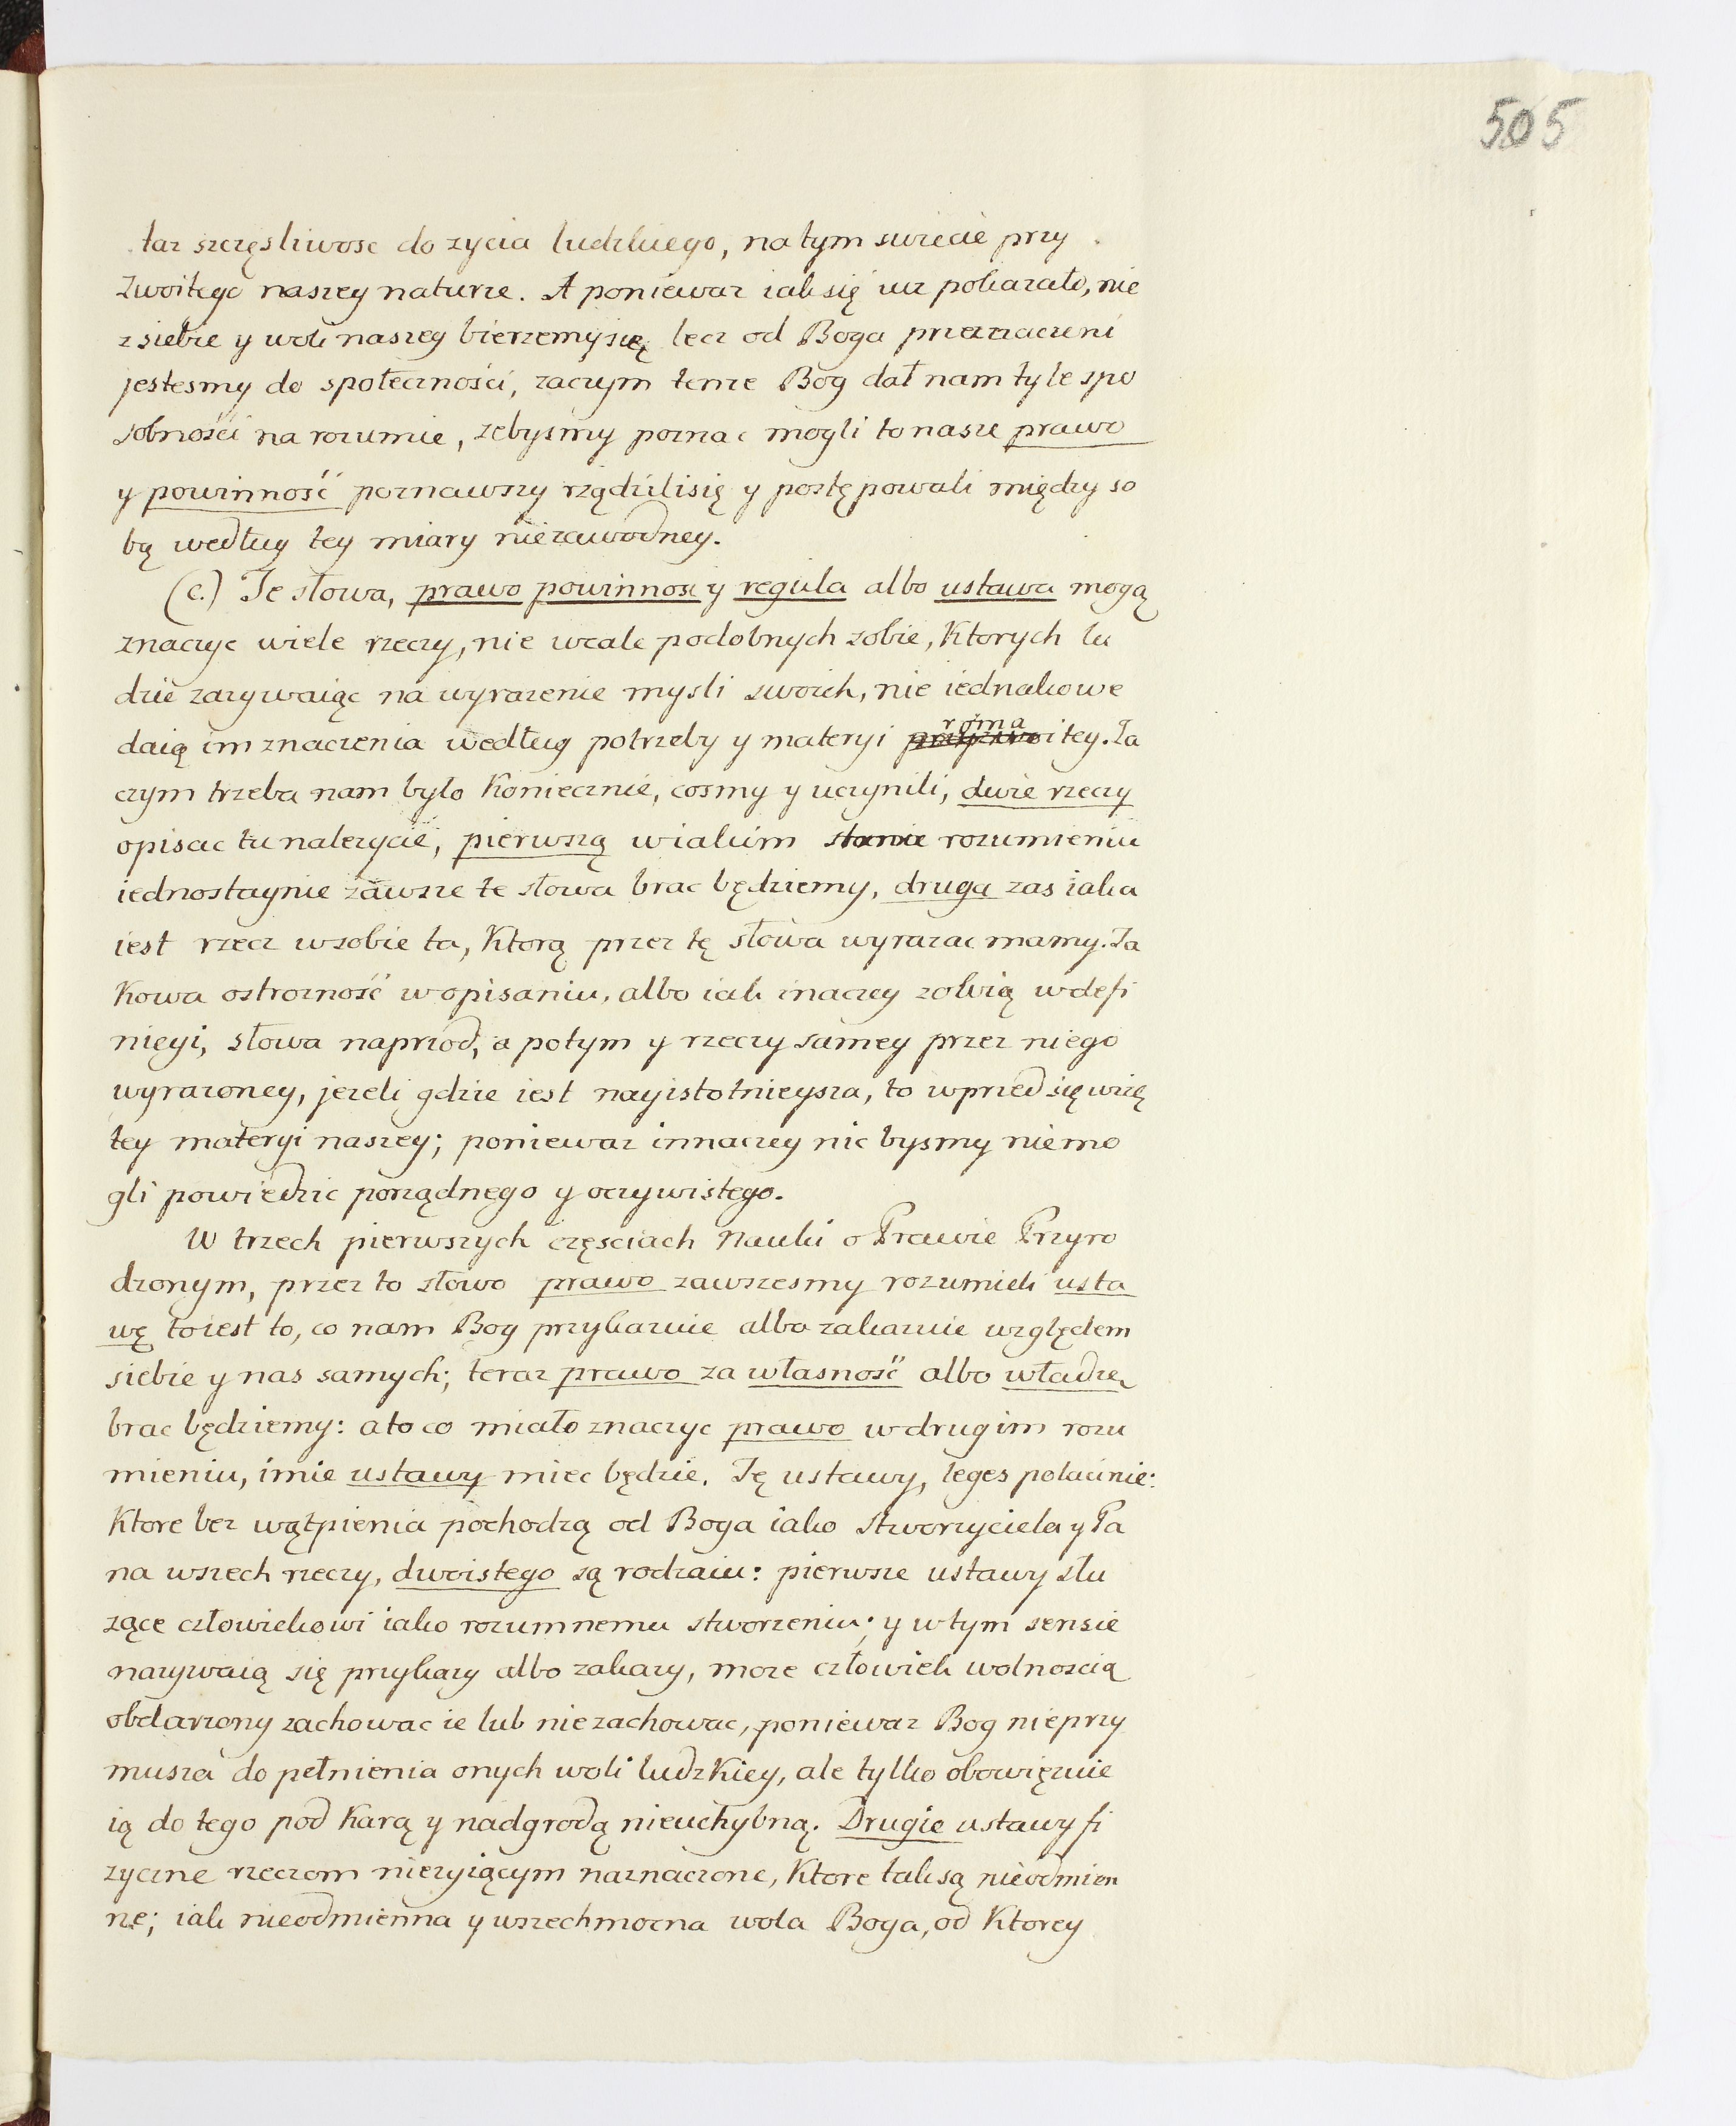 505
taz szczęsliwosc do zycia ludzkiego, na tym swiecie przy
zwoitego naszey naturze. A poniewaz iak się iuz pokazało, nie
z siebie y woli naszey bierzemy się lecz od Boga przeznaczeni
jestesmy do społeczności, zaczym tenze Bog dał nam tyle spo
sobności na rozumie, zebysmy poznac mogli to nasze prawo
y powinność poznawszy rządzili się y postępowali między so
bą według tey miary niezawodney.
(c.) Te słowa, prawo powinnosc y regula albo ustawa mogą
znaczyc wiele rzeczy, nie wcale podobnych sobie, Ktorych lu
dzie zazywaiąc na wyrazenie mysli swoich, nie iednakowe
daią im znaczenia według potrzeby y materyi przyzwoitey. Za
rozma
czym trzeba nam było Koniecznie, cosmy y uczynili, dwie rzeczy
opisac tu nalezycie, pierwszą w iakim stanie rozumieniu
iednostaynie zawsze te słowa brac będziemy, drugą zas iaka
iest rzecz w sobie ta, Ktorą przez tę słowa wyrazac mamy. Ta
Kowa ostrozność w opisaniu, albo iak inaczey zowią w defi
nicyi, słowa naprzod, a potym y rzeczy samey przez niego
wyrazoney, jezeli gdzie iest nayistotnieysza, to w przed się wzię
tey materyi naszey; poniewaz innaczey nic bysmy nie mo
gli powiedzic porządnego y oczywistego.
W trzech pierwszych częsciach Nauki o Prawie Przyro
dzonym, przez to słowo prawo zawszesmy rozumieli usta
wę to iest to, co nam Bog przykazuie albo zakazuie względem
siebie y nas samych; teraz prawo za własność albo władzę
brac będziemy: a to co miało znaczyc prawo w drugim rozu
mieniu, imie ustawy miec będzie. Tę ustawy, leges po łacinie:
Ktore bez wątpienia pochodzą od Boga iako stworzyciela y Pa
na wszech rzeczy, dwoistego są rodzaiu: pierwsze ustawy słu
zące człowiekowi iako rozumnemu stworzeniu; y w tym sensie
nazywaią się przykazy albo zakazy, moze człowiek wolnoscią
obdarzony zachowac ie lub nie zachowac, poniewaz Bog nie przy
musza do pełnienia onych woli ludzKiey, ale tylko obowięzuie
ią do tego pod Karą y nadgrodą nieuchybną. Drugie ustawy fi
zyczne rzeczom nieżyiącym naznaczone, Ktore tak są nieodmien
ne; iak nieodmienna y wszechmocna wola Boga, od Ktorey